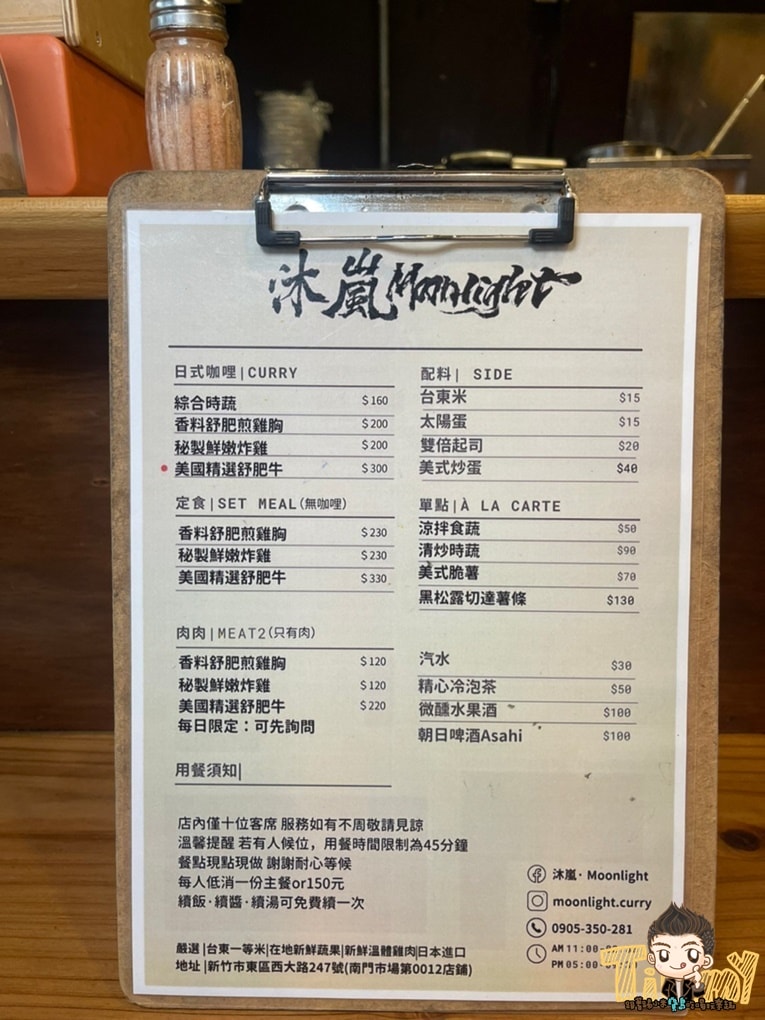 沐嵐Moonlight
日式咖哩|CURRY
綜合時蔬 $160
香料舒肥煎雞胸 $200
秘製鮮嫩炸雞 $200
美國精選舒肥牛 $300
定食|SET MEAL(無咖哩)
香料舒肥煎雞胸 $230
秘製鮮嫩炸雞 $230
美國精選舒肥牛 $330
肉肉|MEAT2(只有肉)
香料舒肥煎雞胸 $120
秘製鮮嫩炸雞 $120
美國精選舒肥牛 $220
每日限定：可先詢問
配料| SIDE
台東米 $15
太陽蛋 $15
雙倍起司 $20
美式炒蛋 $40
單點|À LA CARTE
涼拌食蔬 $50
清炒時蔬 $90
美式脆薯 $70
黑松露切達薯條 $130
汽水 $30
精心冷泡茶 $50
微醺水果酒 $100
朝日啤酒Asahi $100
用餐須知|
店內僅十位客席 服務如有不周敬請見諒
溫馨提醒 若有人候位，用餐時間限制為45分鐘
餐點現點現做 謝謝耐心等候
每人低消一份主餐or150元
續飯·續醬·續湯可免費續一次
嚴選|台東一等米|在地新鮮蔬果|新鮮溫體雞肉|日本進口
地址|新竹市東區西大路247號(南門市場第0012店鋪)
沐嵐· Moonlight
moonlight.curry
0905-350-281
AM 11:00
PM 05:00